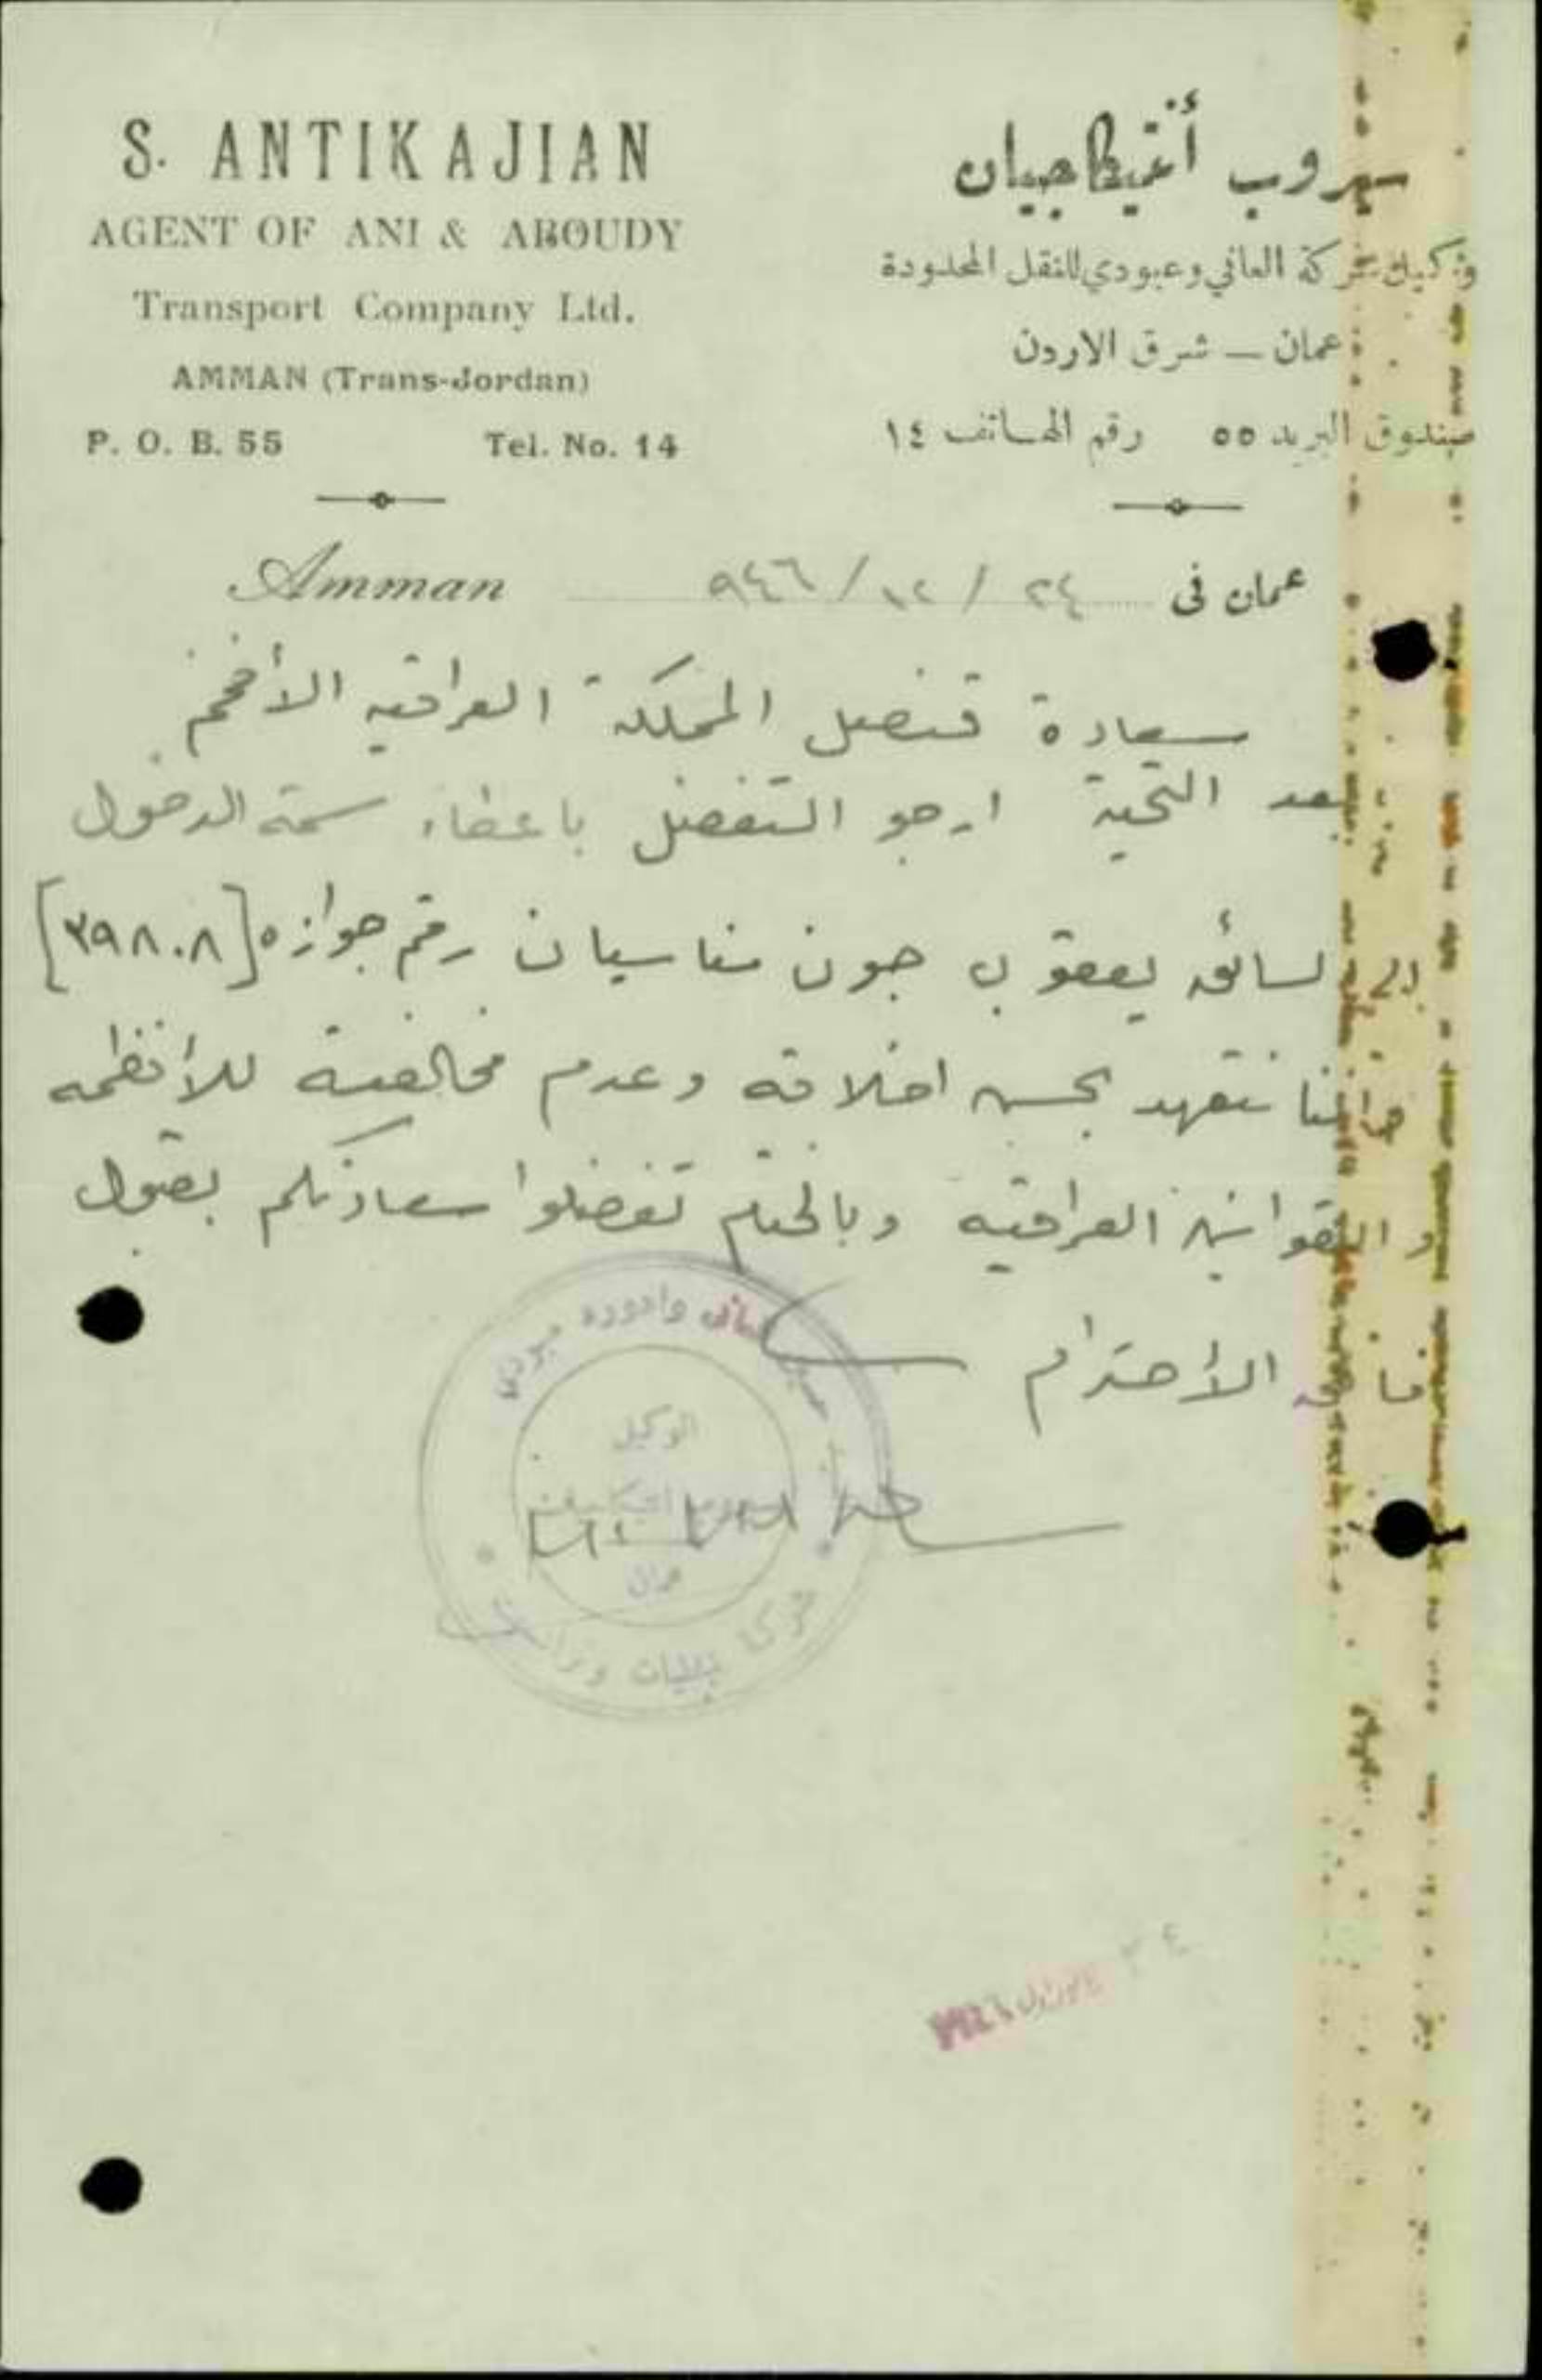 S. ANTIKAJIAN
AGENT OF ANI & ABOUDY
Transport Company Ltd.
AMMAN (Trans-Jordan)
P. O. B. 55 Tel. No. 14
سهروب أنتيكاجيان
وكيل شركة العاني وعبودي للنقل المحدودة
عمان — شرق الاردن
صندوق البريد ٥٥ رقم الهاتف ١٤
Amman ٢٤ / ١٢ / ٩٤٦ عمان في
سعادة قنصل المملكة العراقيه الأفخم
بعد التحية ارجو التفضل باعطاء سمة الدخول
الى السائق يعقوب جون مناسيان رقم جوازه [٣٩٨٠٨]
واننا نتعهد بحسن اخلاقه وعدم مخالفته للأنظمه
و القوانين العراقيه وبالختام تفضلوا سعادتكم بقبول
فائق الأحترام
الوكيل
عمان